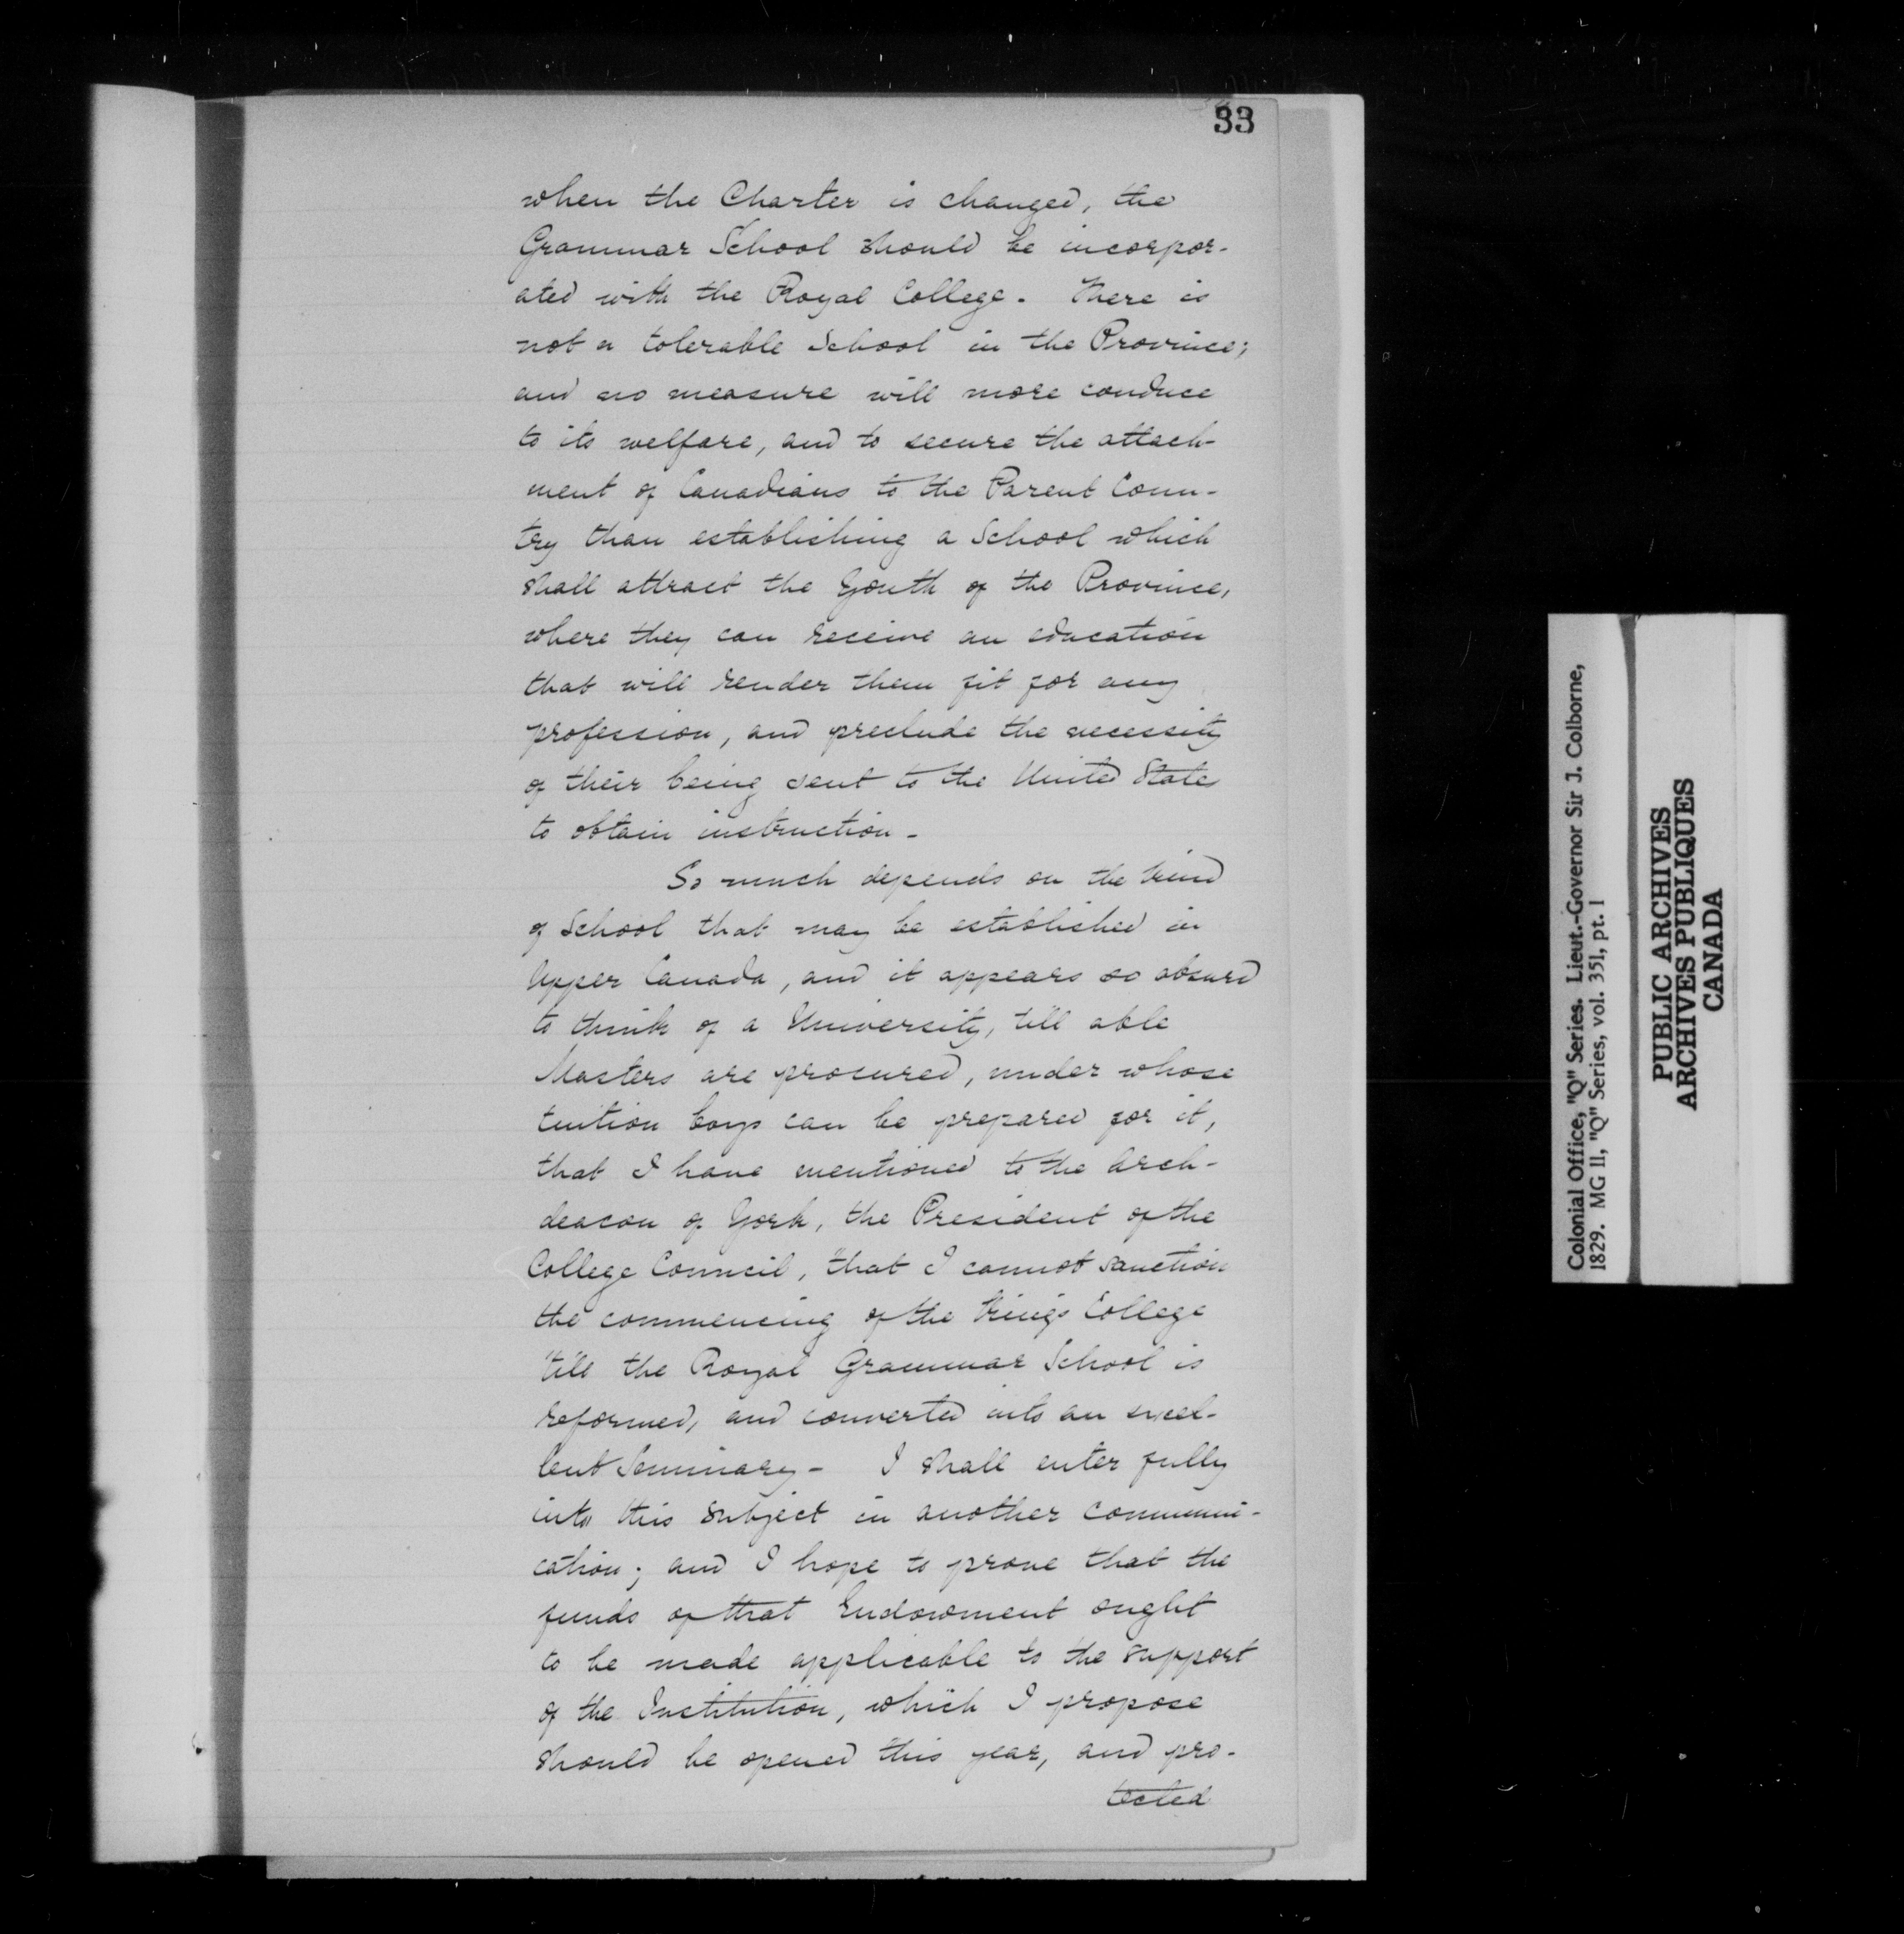 33
when the Charter is changed, the
Grammar School should be incorpor-
ated with the Royal College. There is
not a tolerable School in the Province;
and no measure will more conduce
to its welfare, and to secure the attach-
ment of Canadians to the Parent Coun-
try than establishing a School which
shall attract the Youth of the Province,
where they can receive an education
that will render them fit for any
profession, and preclude the necessity
of their being sent to the United States
to obtain instruction -
So much depends on the kind
of School that may be established in
Upper Canada, and it appears so absurd
to think of a University, till able
Masters are procured, under whose
tuition boys can be prepared for it,
that I have mentioned to the Arch-
deacon of York, the President of the
College Council, that I cannot sanction
the commencing of the Kings College
'till the Royal Grammar School is
reformed, and converted into an excel-
lent Seminary - I shall enter fully
into this subject in another communi-
cation; and I hope to prove that the
funds of that Endowment ought
to be made applicable to the support
of the Institution, which I propose
should be opened this year, and pro-
tected
Colonial Office, "Q" Series. Lieut.-Governor Sir J. Colborne,
1829. MG 11, "Q" Series, vol. 351, pt. 1
PUBLIC ARCHIVES
ARCHIVES PUBLIQUES
CANADA